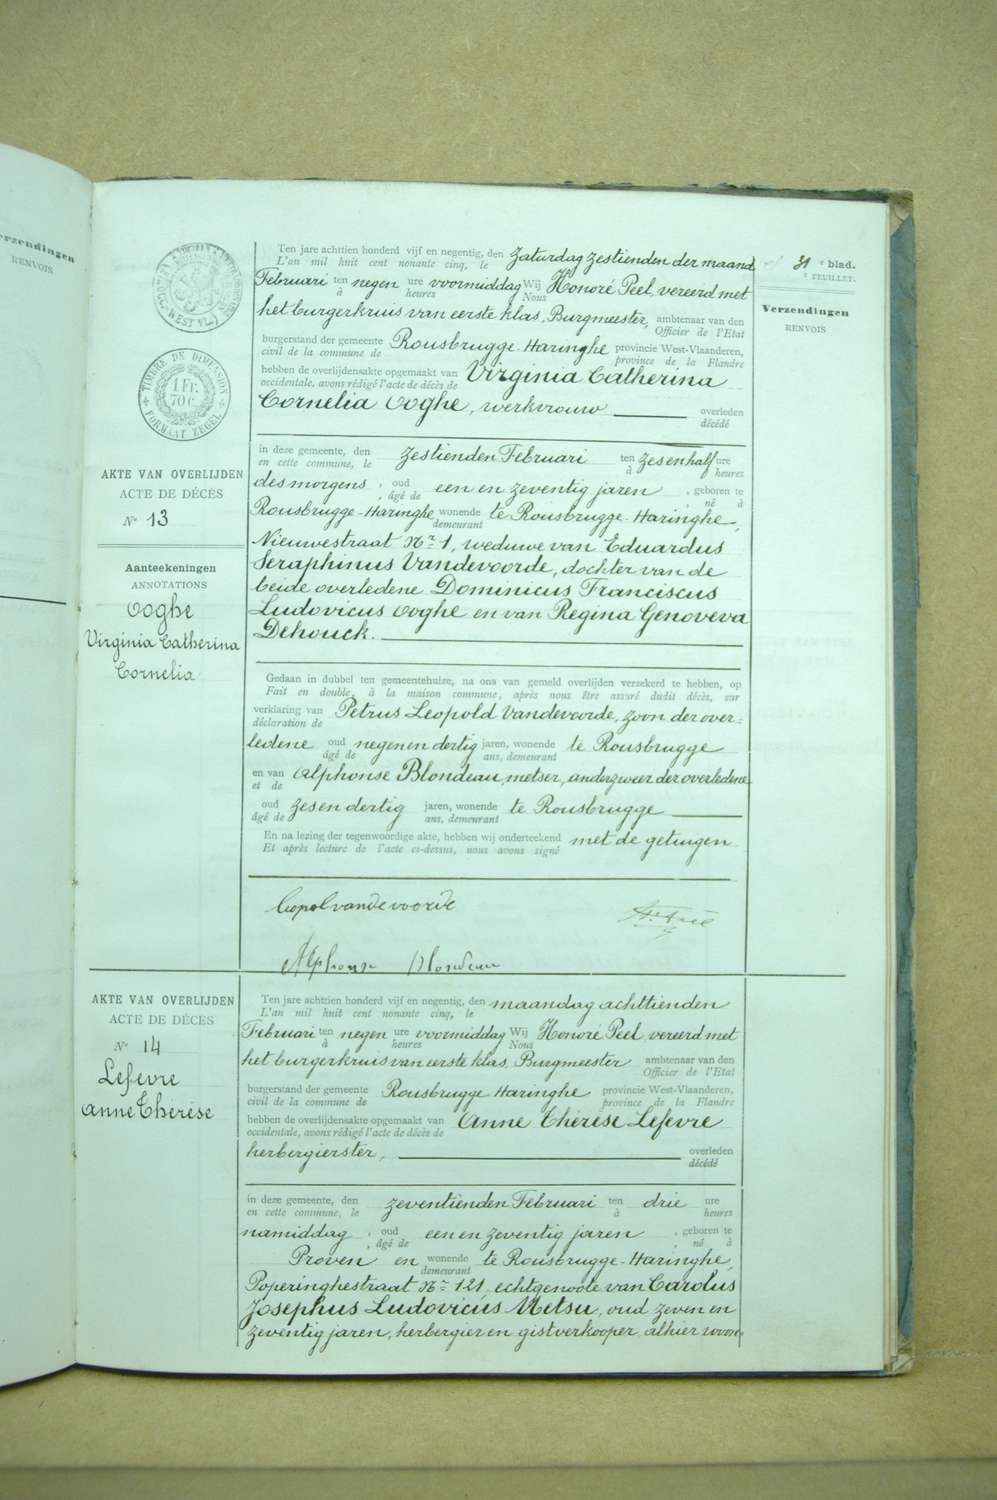 Verzendingen
RENVOIS
WEST-VL.
TIMBRE DE DIMENSION
1 Fr.
70 c.
FORMAAT ZEGEL
31 e blad.
e FEUILLET.
Verzendingen
RENVOIS
AKTE VAN OVERLIJDEN
ACTE DE DÉCÈS
No 13
Aanteekeningen
ANNOTATIONS
Ooghe
Virginia Catherina
Cornelia
Ten jare achttien honderd vijf en negentig, den Zaturdag zestienden der maand
L'an mil huit cent nonante cinq, le
Februari ten negen ure voormiddag Wij Honoré Peel, vereerd met
à heures Nous
het burgerkruis van eerste klas, Burgmeester, ambtenaar van den
Officier de l'Etat
burgerstand der gemeente Rousbrugge-Haringhe provincie West-Vlaanderen,
civil de la commune de province de la Flandre
hebben de overlijdensakte opgemaakt van Virginia Catherina
occidentale, avons rédigé l'acte de décès de
Cornelia Ooghe, werkvrouw overleden
décédé
in deze gemeente, den zestienden Februari ten zesenhalf ure
en cette commune, le à heures
des morgens, oud een en zeventig jaren, geboren te
, âgé de , né à
Rousbrugge-Haringhe wonende te Rousbrugge-Haringhe,
demeurant
Nieuwestraat No 1, weduwe van Eduardus
Seraphinus Vandevoorde, dochter van de
beide overledene Dominicus Franciscus
Ludovicus Ooghe en van Regina Genoveva
Dehouck.
Gedaan in dubbel ten gemeentehuize, na ons van gemeld overlijden verzekerd te hebben, op
Fait en double, à la maison commune, après nous être assuré dudit décès, sur
verklaring van Petrus Leopold Vandevoorde, zoon der over=
déclaration de
ledene oud negenendertig jaren, wonende te Rousbrugge
âgé de ans, demeurant
en van Alphonse Blondeau, metser, anderzweer der overledene
et de
oud zesendertig jaren, wonende te Rousbrugge
âgé de ans, demeurant
En na lezing der tegenwoordige akte, hebben wij onderteekend met de getuigen
Et après lecture de l'acte ci-dessus, nous avons signé
Leopol vandevoorde
Alphonse Blondeau
AKTE VAN OVERLIJDEN
ACTE DE DÉCÈS
No 14
Lefevre
Anne Thérèse
Ten jare achttien honderd vijf en negentig, den maandag achttienden
L'an mil huit cent nonante cinq, le
Februari ten negen ure voormiddag Wij Honoré Peel, vereerd met
à heures Nous
het burgerkruis van eerste klas, Burgmeester ambtenaar van den
Officier de l'Etat
burgerstand der gemeente Rousbrugge Haringhe provincie West-Vlaanderen,
civil de la commune de province de la Flandre
hebben de overlijdensakte opgemaakt van Anne Thérèse Lefevre
occidentale, avons rédigé l'acte de décès de
herbergierster, overleden
décédé
in deze gemeente, den zeventienden Februari ten drie ure
en cette commune, le à heures
namiddag, oud een en zeventig jaren, geboren te
, âgé de , né à
Proven en wonende te Rousbrugge-Haringhe,
demeurant
Poperinghestraat No 121, echtgenoote van Carolus
Josephus Ludovicus Metsu, oud zeven en
zeventig jaren, herbergier en gistverkooper, alhier